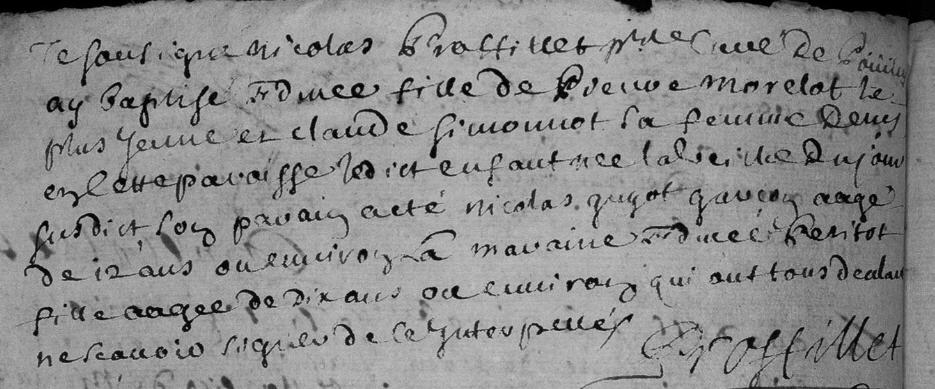 Je sousigne nicolas Proffillet p^tre Curé de Pouilly
ay baptise Edmee fille de Pierre Morelot le
plus Jeune et claude simonnot sa femme Demrs
en cette paroisse ledict enfant nee la veille du jour
susdict son parain a eté nicolas garçon aagé
de 12 ans ou environ, sa maraine Edmeé Petitot
fille aagee de dix ans ou environ qui ont tous declaré
ne scavoir signer de ce Interpellés
Proffillet